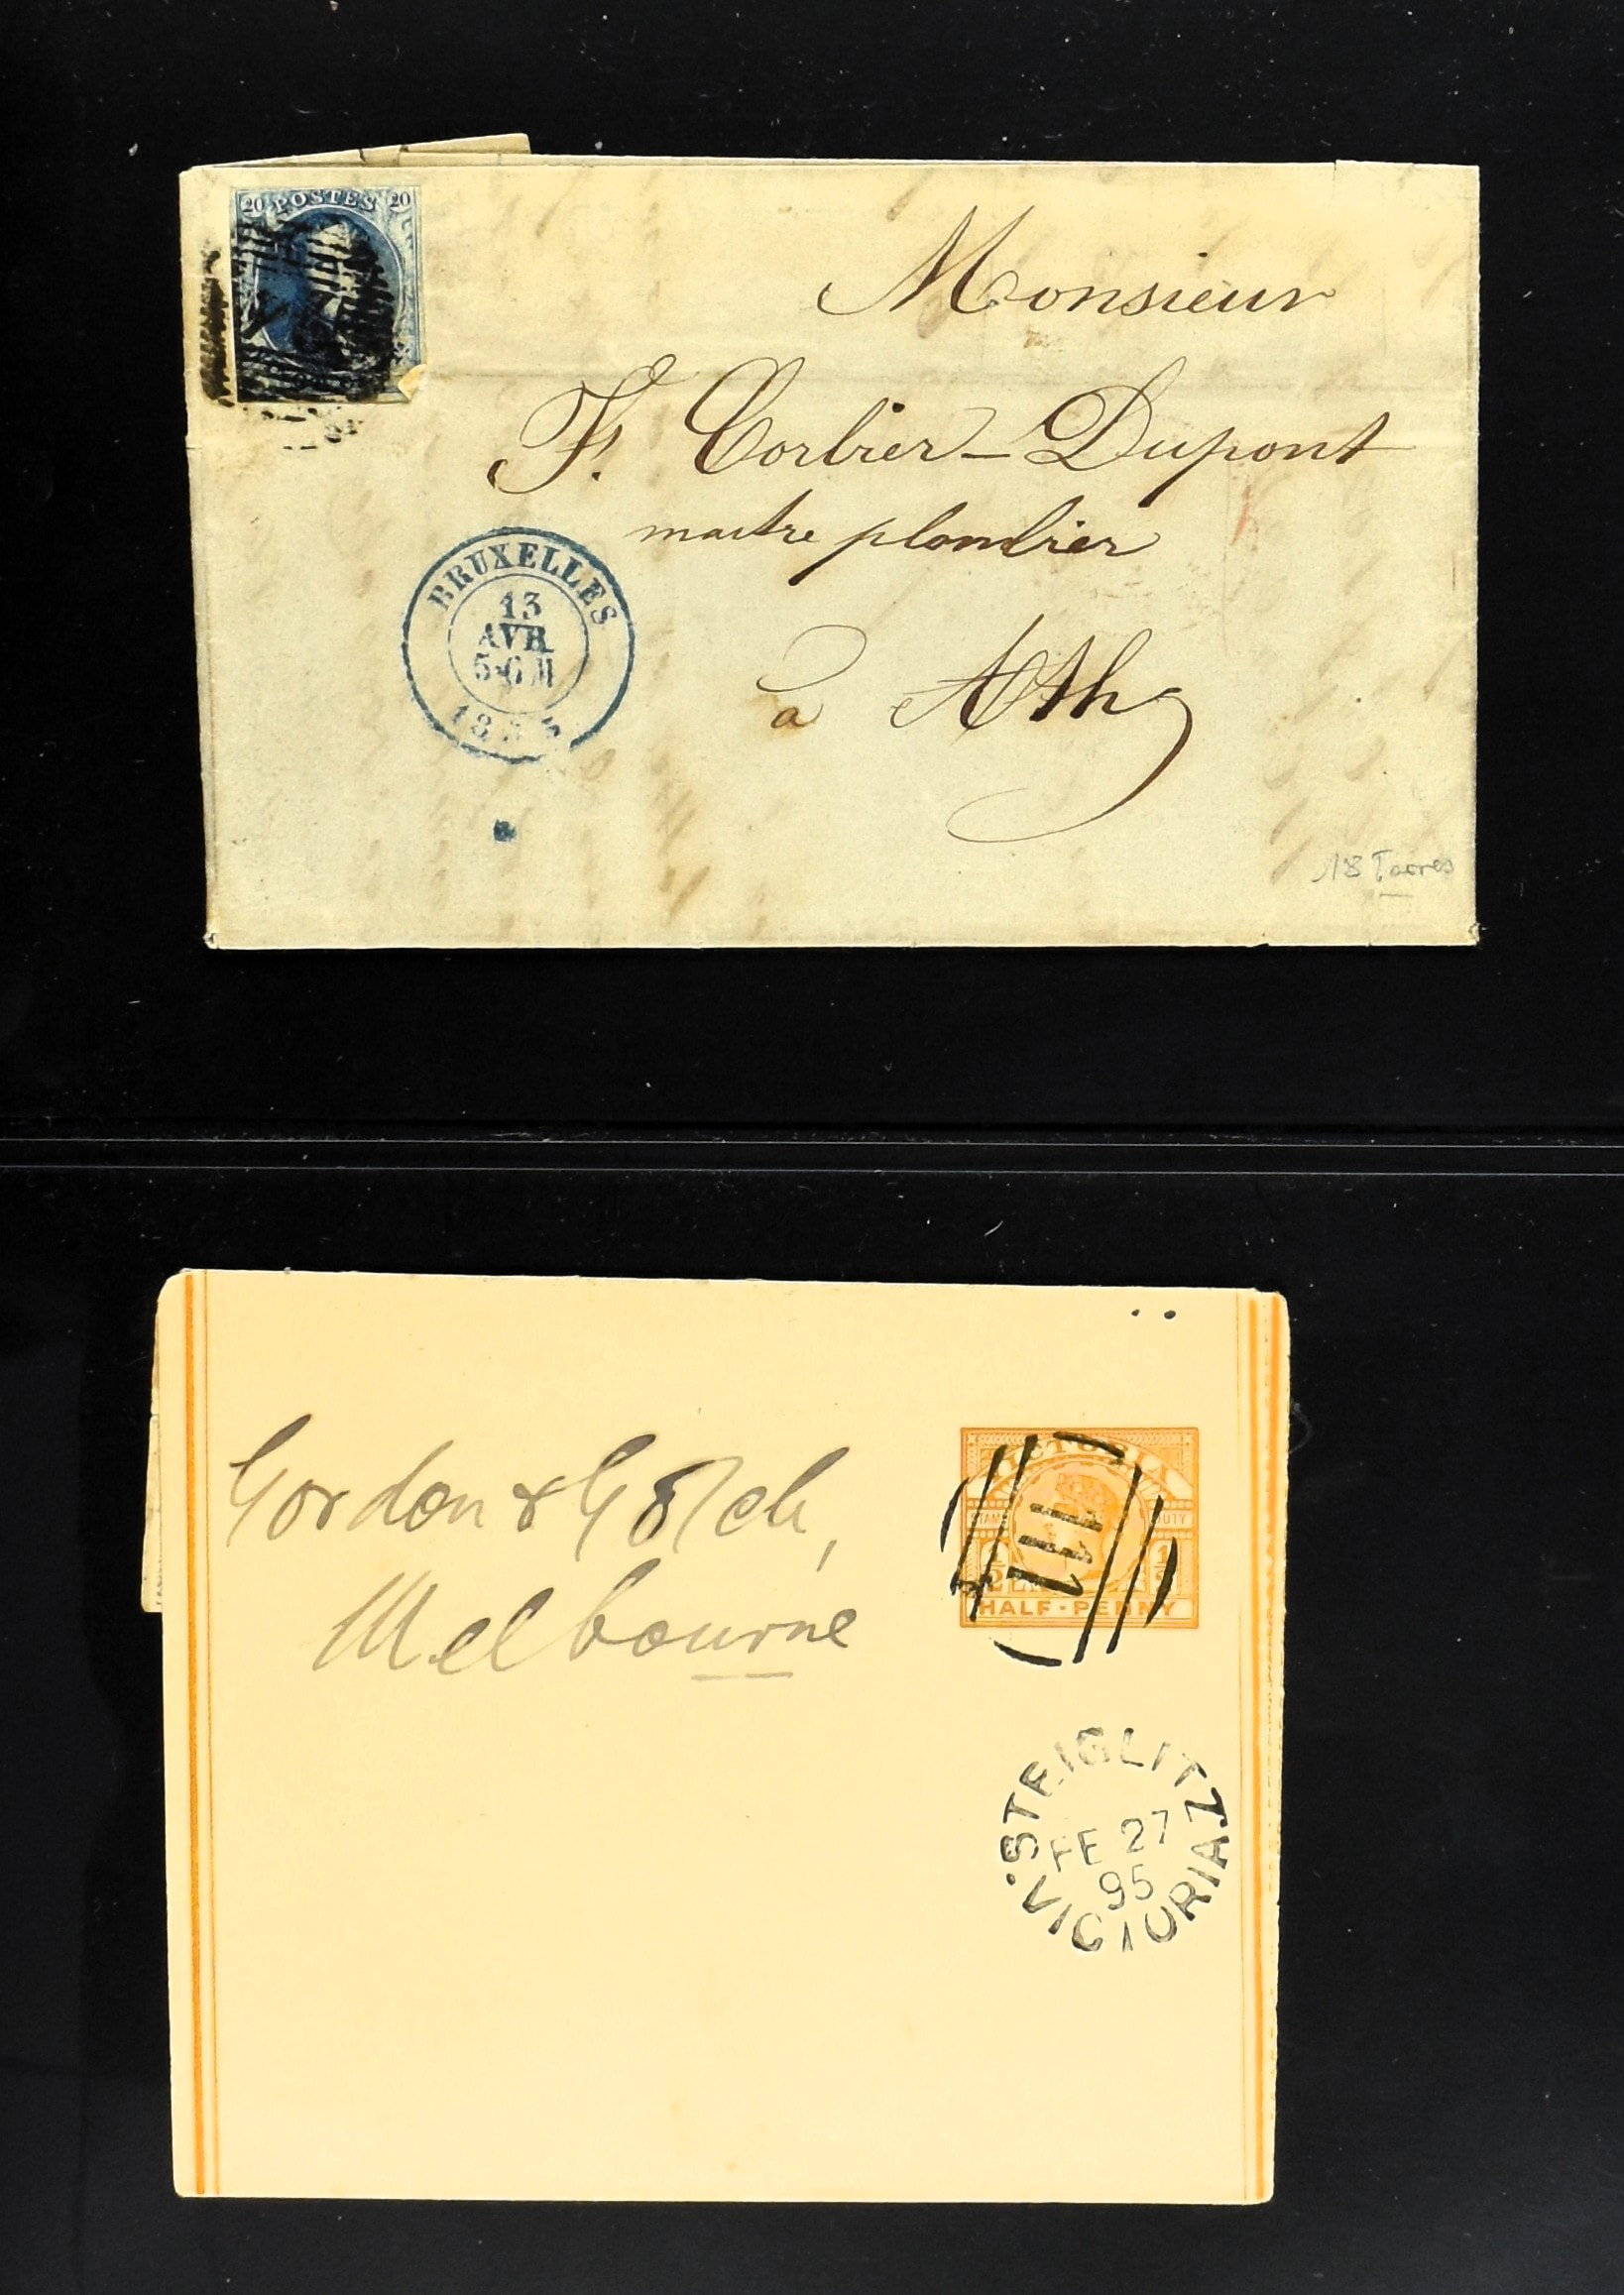 20 POSTES 20
Monsieur
F. Corbier-Dupont
maitre plombier
à Ath
BRUXELLES
13
AVR
5-6 M
18
18
Gordon & Gotch,
Melbourne
VICTORIA
STAMP DUTY
1/2 1/2
HALF-PENNY
STEIGLITZ
FE 27
95
VICTORIA